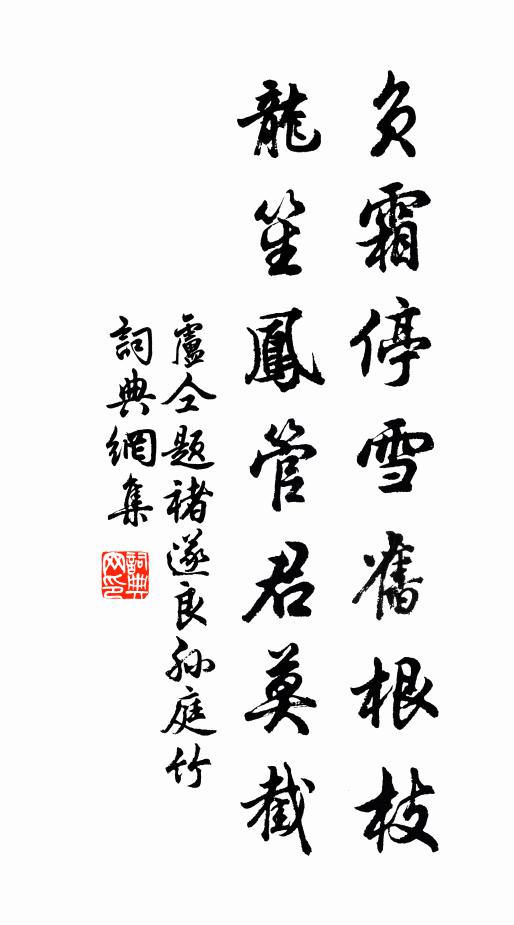 負霜停雪舊根枝
龍笙鳳管君莫截
盧仝題褚遂良孫庭竹
詞典網集
詞典网印